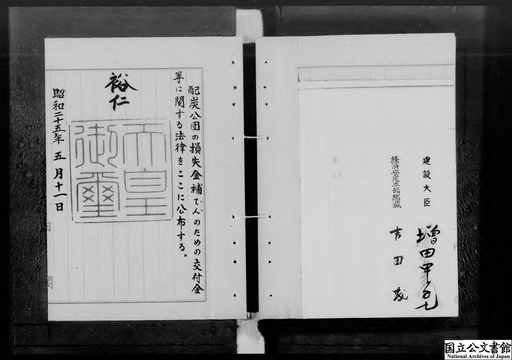 建設大臣
増田甲子七
経済安定本部総裁
吉田茂
配炭公団の損失金補てんのための交付金
等に関する法律をここに公布する。
裕仁
天皇
御璽
昭和二十五年五月十一日
国立公文書館
National Archives of Japan